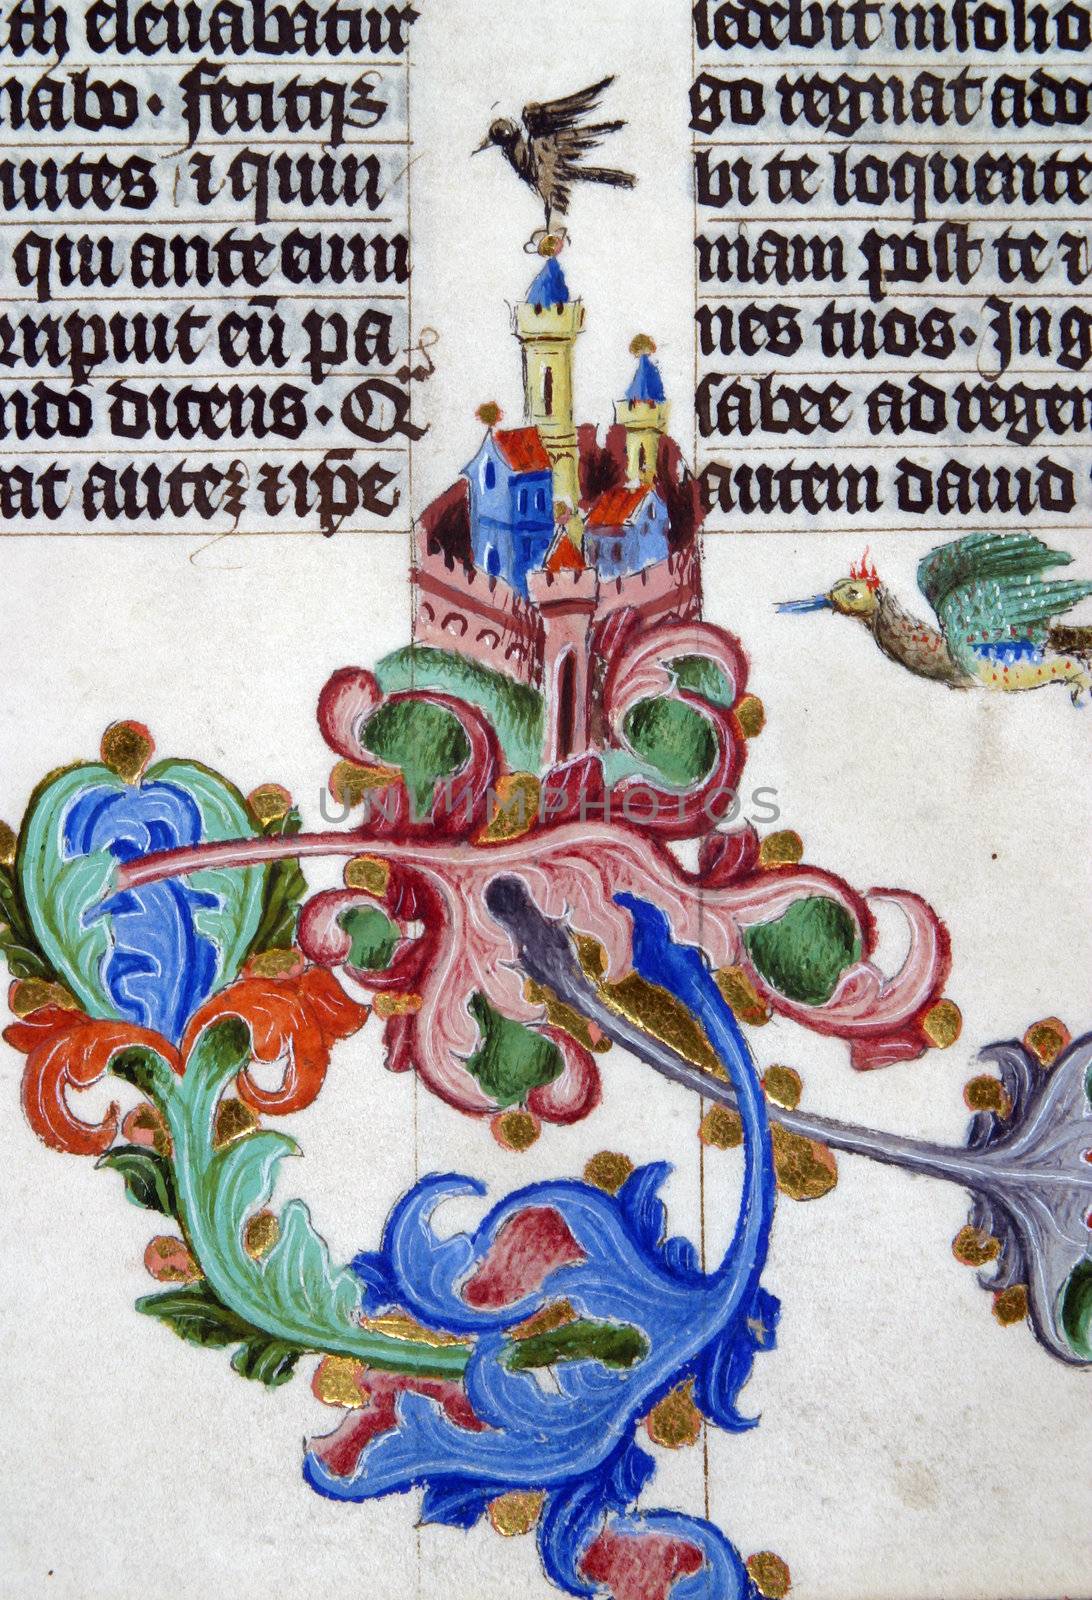 ith eleuabatur
nabo · fecitqꝫ
uites ⁊ quin
qui ante eum
rripuit eū pa
ndo dicens · Qͣ
at auteꝫ ⁊ ip̄e
sedebit in solio
go regnat ado
bi te loquente
niam post te ⁊
nes tuos · Ing
sabee ad regem
autem dauid
UNLIMPHOTOS